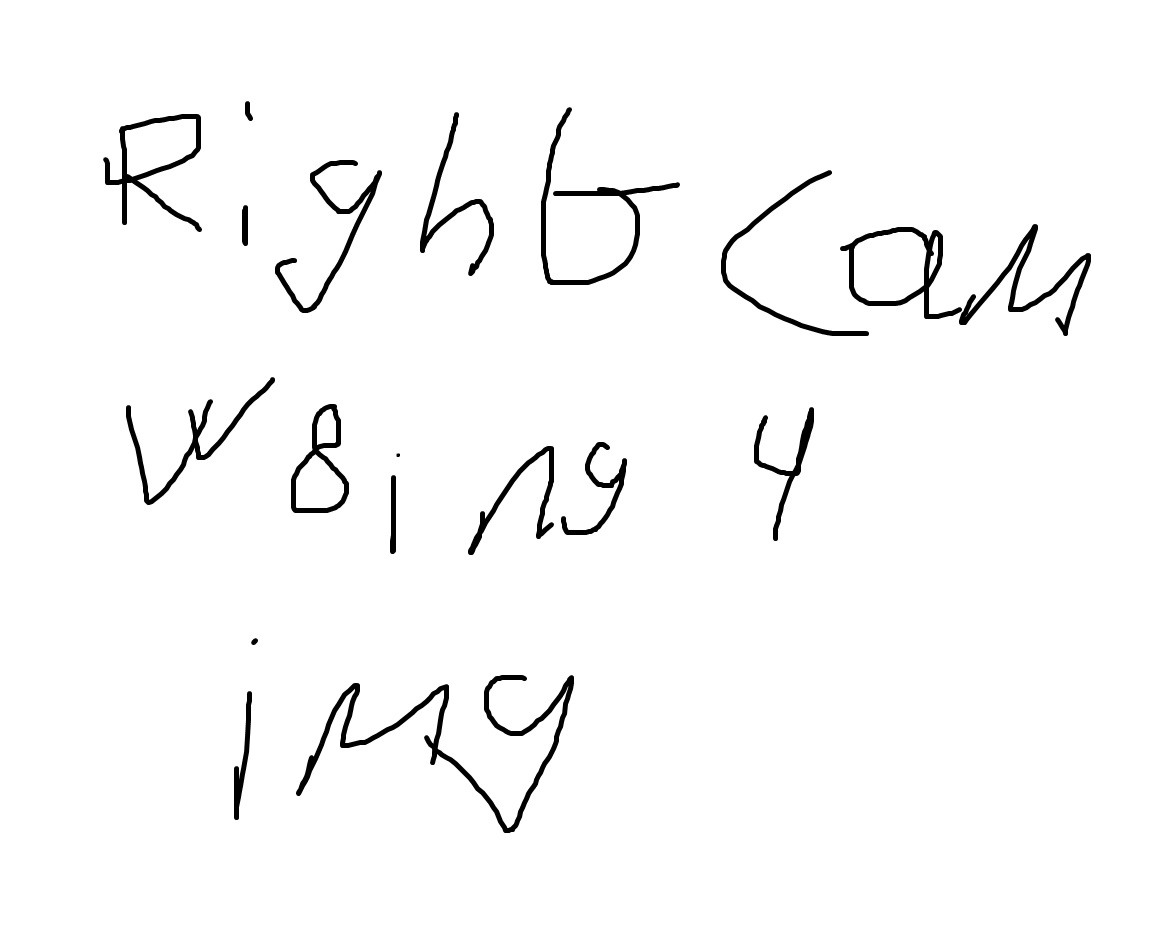 Right Cam
W8ing 4
img